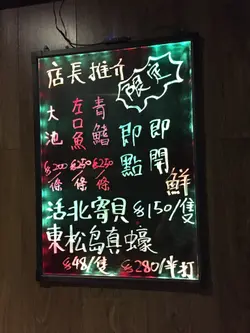 店長推介
限定
青鱔
$250/條
左口魚
$250/條
大池
$200/條
即開
即點
鮮
活北寄貝 $150/隻
東松島真蠔
$48/隻 $280/半打